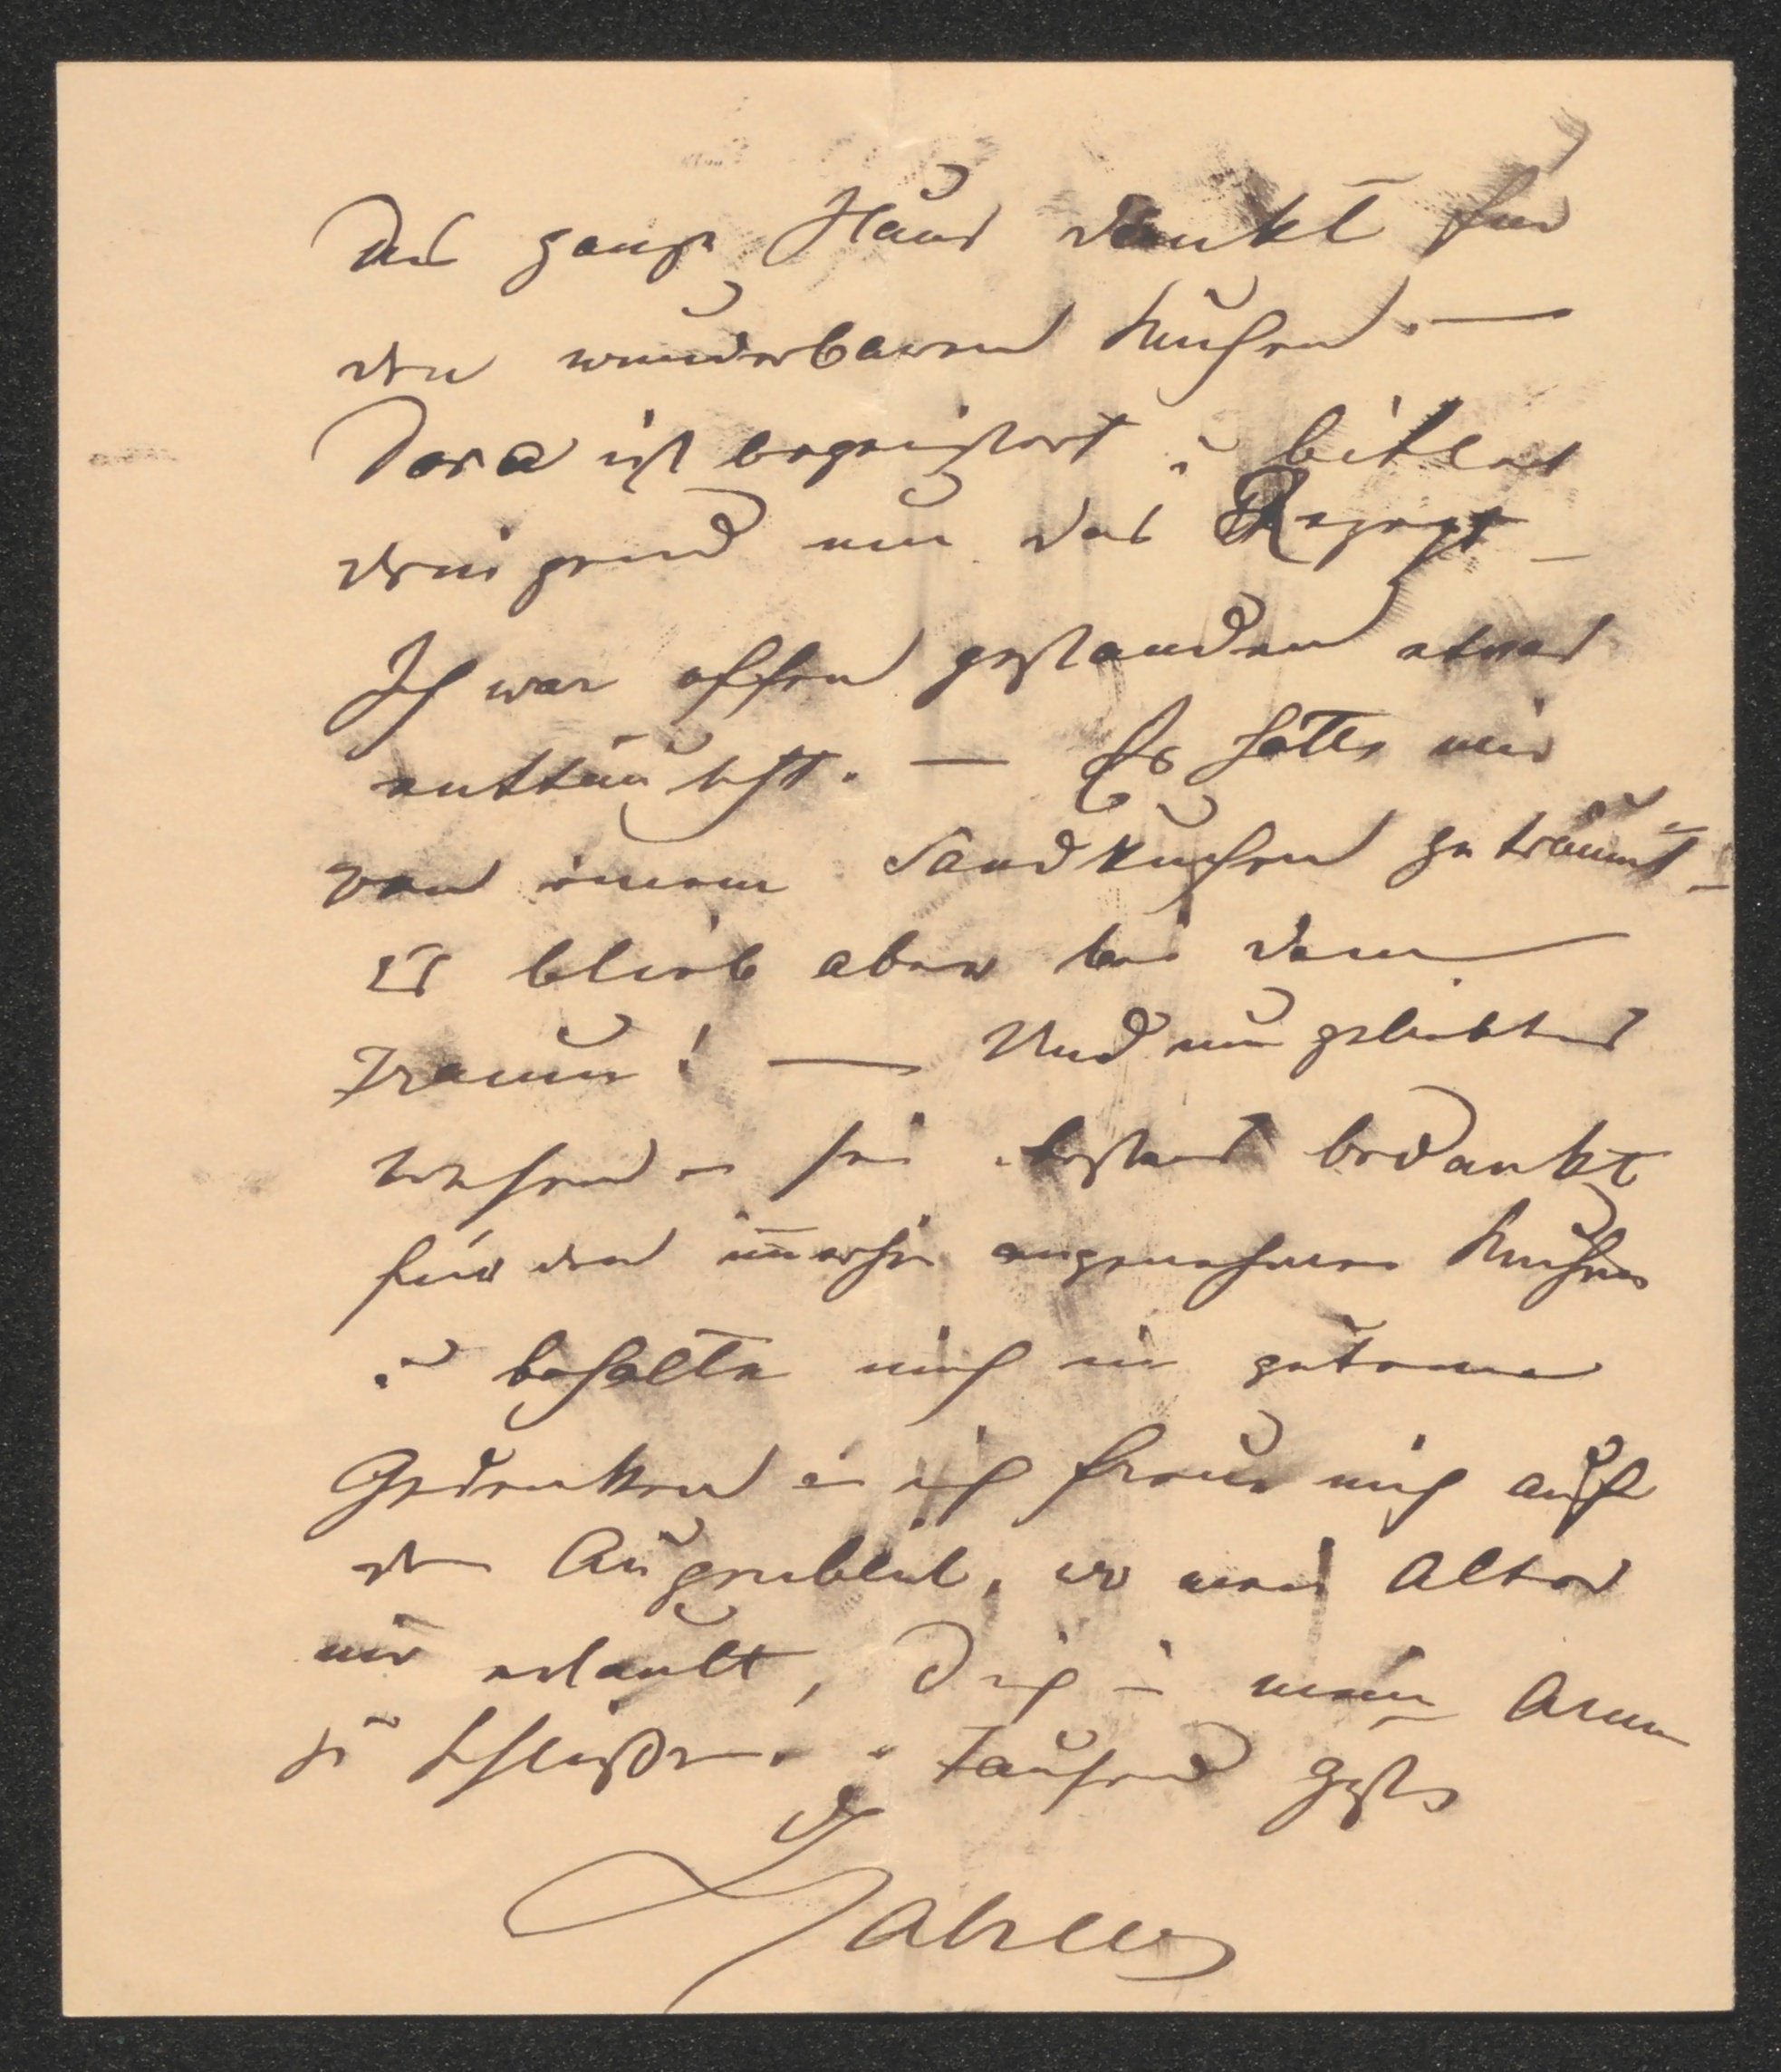 Das ganze Haus dankt für
den wunderbaren Kuchen. —
Dora ist begeistert u bittet
dringend um das Rezept –
Ich war offen gestanden etwas
enttäuscht. — Es hatte mir
von einem Sandkuchen geträumt –
Es blieb aber bei dem
Traum! — Und nun geliebtes
sei bestens bedankt
für den imerhin angenehmen Kuchen
u behalte mich in gutem
Gedenken u ich freue mich auf
den Augenblick, wo mein Alter
mir erlaubt, Dich in meine Arme
zu schließen. Tausend
Dein